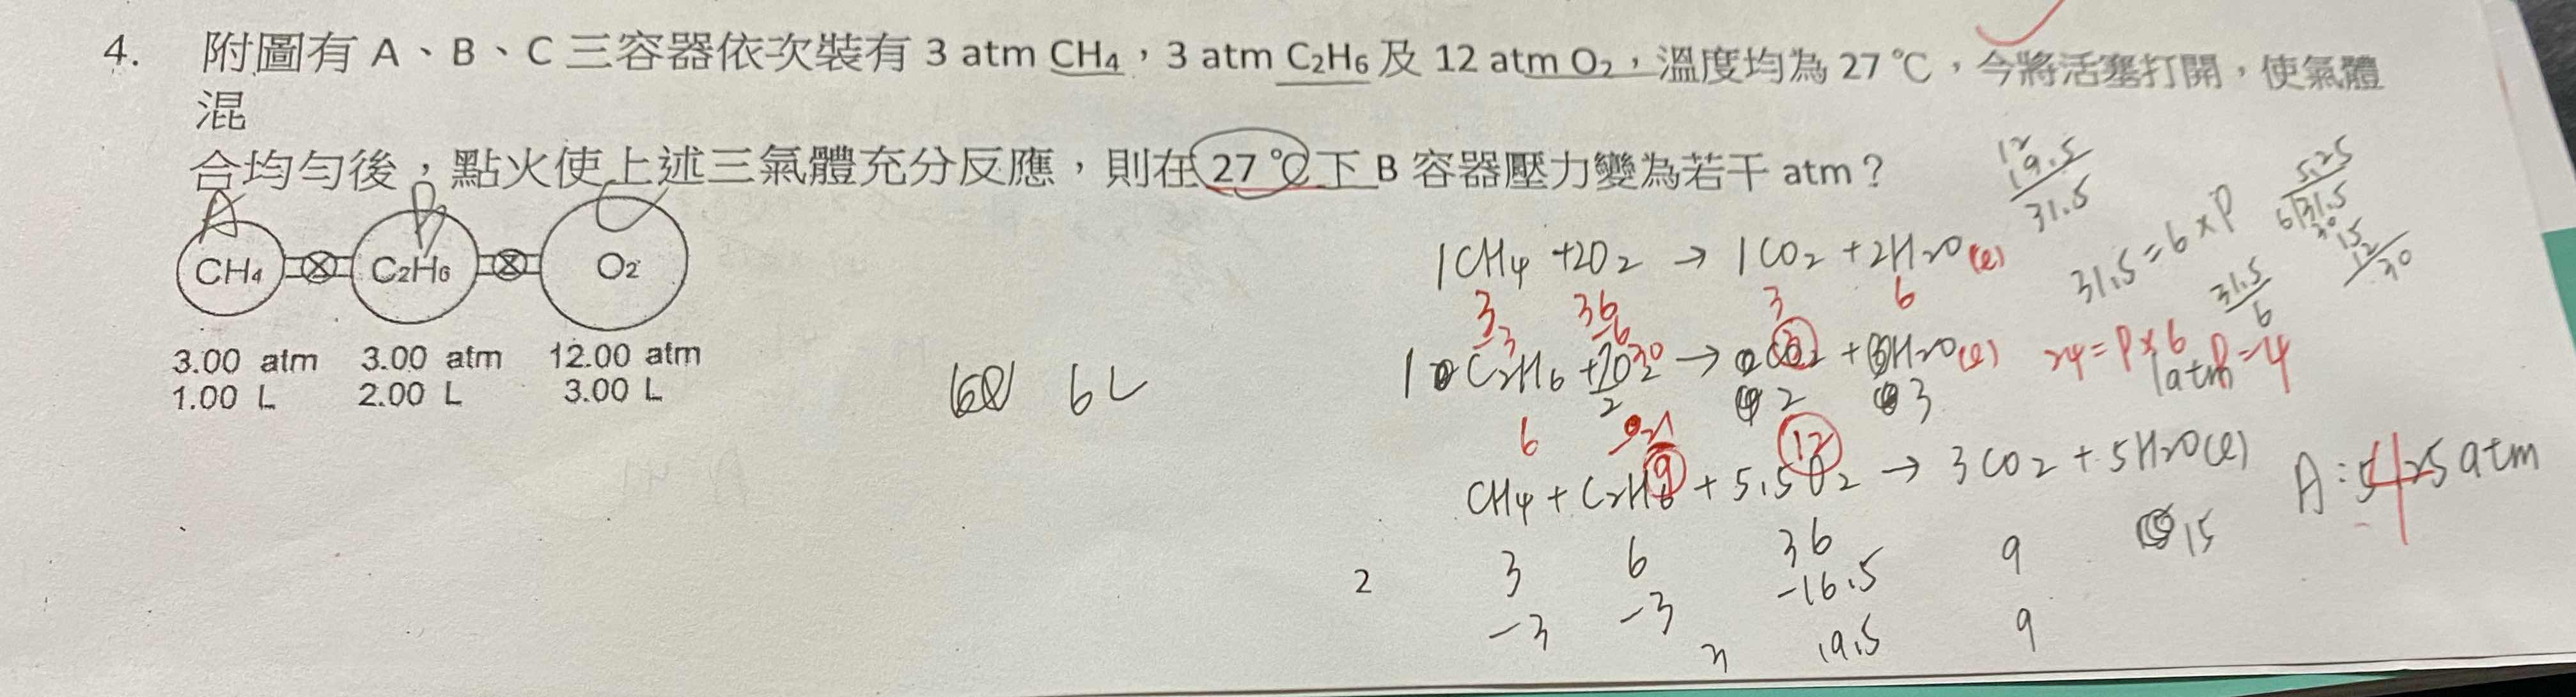 4. 附圖有 A、B、C 三容器依次裝有 3 atm CH₄，3 atm C₂H₆ 及 12 atm O₂，溫度均為 27 ℃，今將活塞打開，使氣體
混
合均勻後，點火使上述三氣體充分反應，則在 27 ℃下 B 容器壓力變為若干 atm？
A B C
CH₄ C₂H₆ O₂
3.00 atm 3.00 atm 12.00 atm
1.00 L 2.00 L 3.00 L
6L
1CH₄ + 2O₂ → 1CO₂ + 2H₂O(l)
3 36 3 6
-3 -6
1 C₂H₆ + 7/2 O₂ 30 → CO₂ + H₂O(l)
2 3
6 21 12
9
CH₄ + C₂H₆ + 5.5O₂ → 3CO₂ + 5H₂O(l)
2 3 6 36 9 15
-3 -3 -16.5
3 19.5 9
12
19.5
31.5
31.5 = 6 × P
31.5
6
5.25
6 31.5
30
15
12
30
24 = P × 6
P = 4
1atm
A: 5.25 atm
4